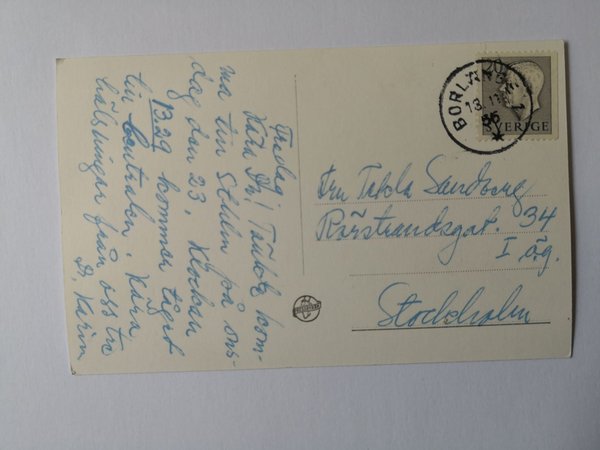 Fredag
Kära Du! Tänkte kom-
ma till Sthlm på ons-
dag den 23. Klockan
13.29 kommer tåget
till Centralen. Kära
hälsningar från oss tre
D. Karin
BORLÄNGE 1
18.11.
56
20
SVERIGE
Fru Tekla Sandberg
Rörstrandsgat. 34
I ög.
Stockholm